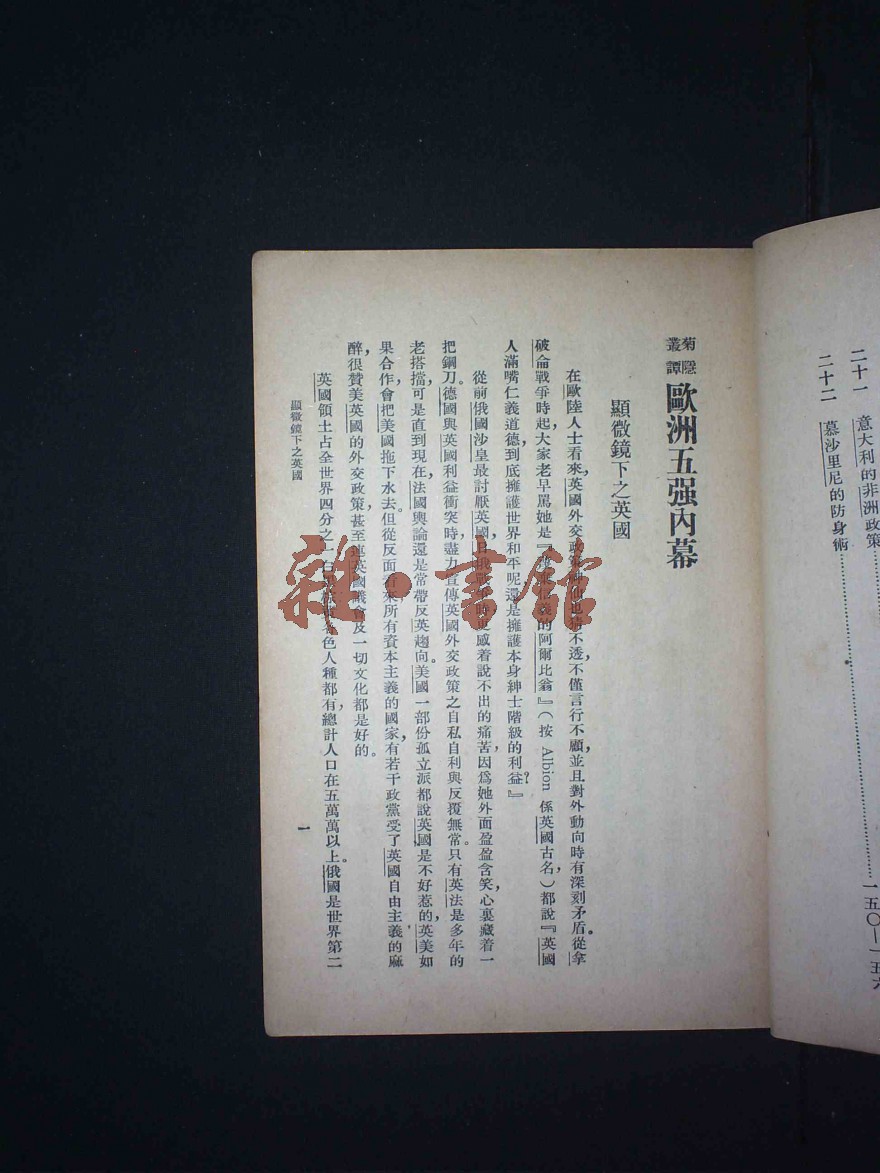 二十一　意大利的非洲政策
二十二　慕沙里尼的防身術……一五〇—一五六
菊隱叢譚　歐洲五强內幕
顯微鏡下之英國
在歐陸人士看來，英國外交政策不透，不僅言行不顧，並且對外動向時有深刻矛盾。從拿
破侖戰爭時起，大家老早罵她是『的阿爾比翁』（按 Albion 係英國古名）都說『英國
人滿嘴仁義道德，到底擁護世界和平呢？還是擁護本身紳士階級的利益？』
從前俄國沙皇最討厭英國，日俄戰爭時更感着說不出的痛苦，因爲她外面盈盈含笑，心裏藏着一
把鋼刀。德國與英國利益衝突時，盡力宣傳英國外交政策之自私自利與反覆無常。只有英法是多年的
老搭擋，可是直到現在，法國輿論還是常帶反英趨向。美國一部份孤立派都說英國是不好惹的，英美如
果合作，會把美國拖下水去。但從反面看來，所有資本主義的國家，有若干政黨受了英國自由主義的麻
醉，很贊美英國的外交政策，甚至連英國議會及一切文化都是好的。
英國領土占全世界四分之一，色人種都有，總計人口在五萬萬以上。俄國是世界第二
顯微鏡下之英國
一
雜·書館